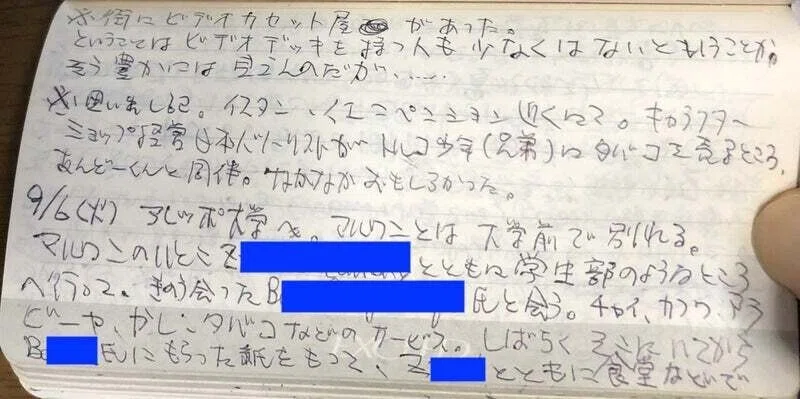 ※街にビデオカセット屋があった。
ということはビデオデッキを持つ人も少なくはないということか。
そう豊かには見えんのだが、……
※思い出し記。イスタン、イエニペンション近くにて。キャラクター
ショップ経営日本人ツーリストがトルコ少年(兄弟)にタバコを売るところ、
あんどーくんと同伴。なかなかおもしろかった。
9/6(火) アレッポ大学へ。マルワンとは大学前で別れる。
マルワンのいとこZ とともに学生部のようなところ
へ行って、きのう会ったB 氏と会う。チャイ、カフワ、アラ
ビーヤ、かし、タバコなどのサービス。しばらくそこにいてから
Be 氏にもらった紙をもって、Z とともに食堂などいで